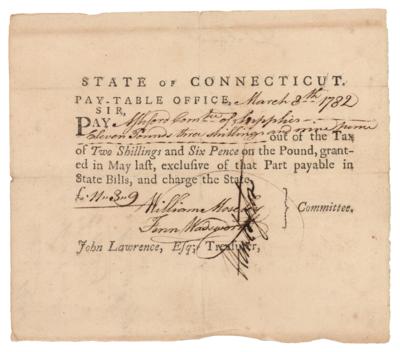 STATE OF CONNECTICUT.
PAY-TABLE OFFICE, March 8th 1782
SIR,
PAY Assistant Comtee of Supplies
Eleven Pounds three shillings and nine pence out of the Tax
of Two Shillings and Six Pence on the Pound, grant-
ed in May last, exclusive of that Part payable in
State Bills, and charge the State.
£11..3..9
William Moseley
Fenn Wadsworth
Committee.
John Lawrence, Esq; Treasurer,